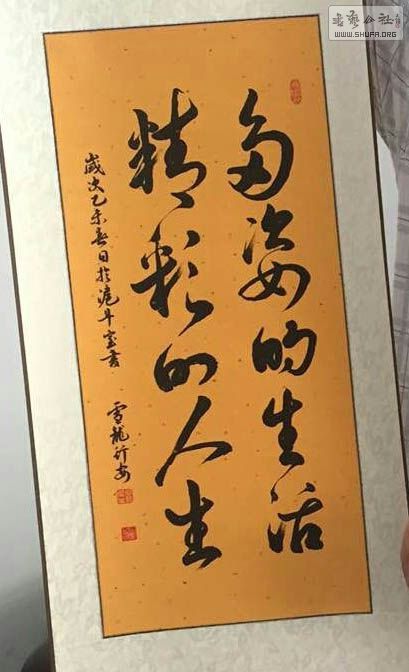 多姿的生活
精彩的人生
歲次乙未春日於滬斗室書
雪龍
书艺公社
WWW.SHUFA.ORG